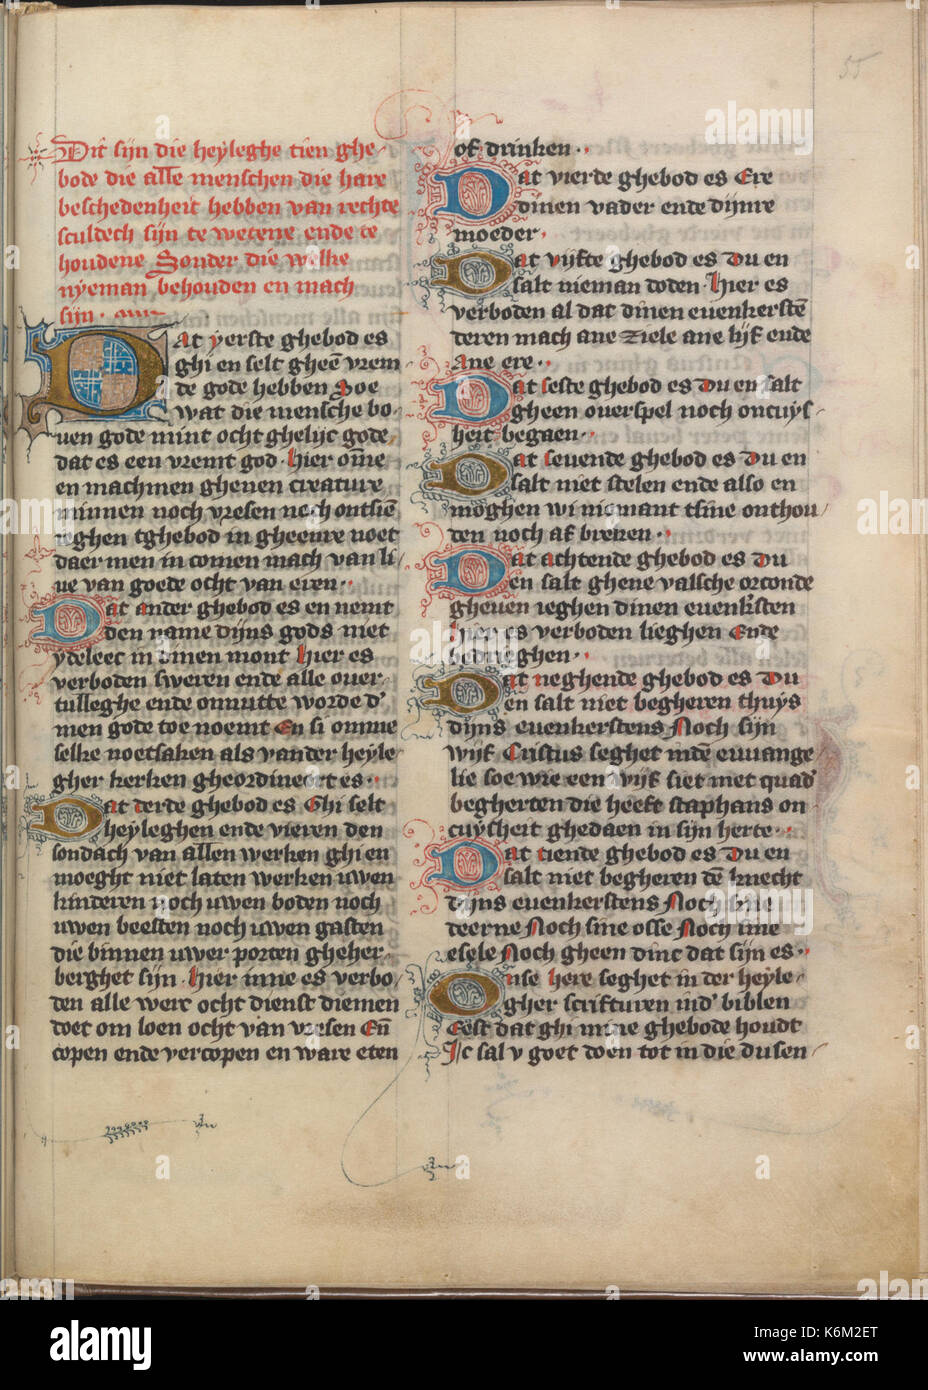 55
Dit sijn die heyleghe tien ghe-
bode die alle menschen die hare
beschedenheit hebben van rechte
sculdech sijn te wetene ende te
houdene Sonder die welke
nyeman behouden en mach
sijn.
Dat yerste ghebod es
ghi en selt gheē vrem
de gode hebben Soe
wat die mensche bo-
uen gode mint ocht ghelijc gode,
dat es een vremt god. Hier om̄e
en machmen gheuen creature
minnen noch vresen noch ontsiē
ieghen tghebod in gheenre noet
daer men in comen mach van li-
ue van goede ocht van eren.
Dat ander ghebod es en nemt
den name dijns gods niet
ydelec in dinen mont Hier es
verboden sweren ende alle ouer-
tulleghe ende onnutte worde d'
men gode toe noemt En si omme
selke noetsaken als vander heyle-
gher kerken gheordineert es.
Dat derde ghebod es Ghi selt
heyleghen ende vieren den
sondach van allen werken ghi en
moeght niet laten werken uwen
kinderen noch uwen boden noch
uwen beesten noch uwen gasten
die binnen uwer porten gheher-
berghet sijn. Hier inne es verbo-
den alle werc ocht dienst diemen
doet om loen ocht van vresen En̄
copen ende vercopen en ware eten
of drinken.
Dat vierde ghebod es Ere
dinen vader ende dijnre
moeder.
Dat vijfte ghebod es Du en
salt nieman doden. Hier es
verboden al dat dinen euenkerstē
deren mach ane ziele ane lijf ende
Ane ere.
Dat seste ghebod es Du en salt
gheen ouerspel noch oncuys-
heit begaen.
Dat seuende ghebod es Du en
salt niet stelen ende also en
moghen wi niemant tsine onthou-
den noch af breken.
Dat achtende ghebod es Du
en salt ghene valsche orconde
gheuen ieghen dinen euenk'sten
Hier es verboden lieghen Ende
bedrieghen.
Dat neghende ghebod es Du
en salt niet begheren thuys
dijns euenkerstens Noch sijn
wijf Cristus seghet indē ewange-
lie soe wie een wijf siet met quad'
begherten die heeft staphans on-
cuyscheit ghedaen in sijn herte.
Dat tiende ghebod es Du en
salt niet begheren dē knecht
dijns euenkerstens Noch sine
deerne Noch sine osse Noch sine
esele Noch gheen dinc dat sijn es.
Onse here seghet in der heyle-
gher scrifturen ind' biblen
Eest dat ghi mine ghebode houdt
Jc sal v goet doen tot in die dusen-
alamy
Image ID: K6M2ET
www.alamy.com